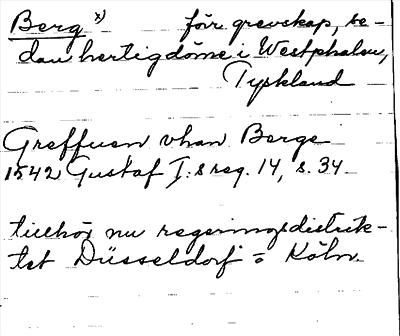 Berg x) förr grevskap, se-
dan hertigdöme i Westphalen,
Tyskland
Greffuen vhan Berge
1542 Gustaf I:s reg. 14, s. 34
tillhör nu regeringsdistrik-
tet Düsseldorf o Köln.